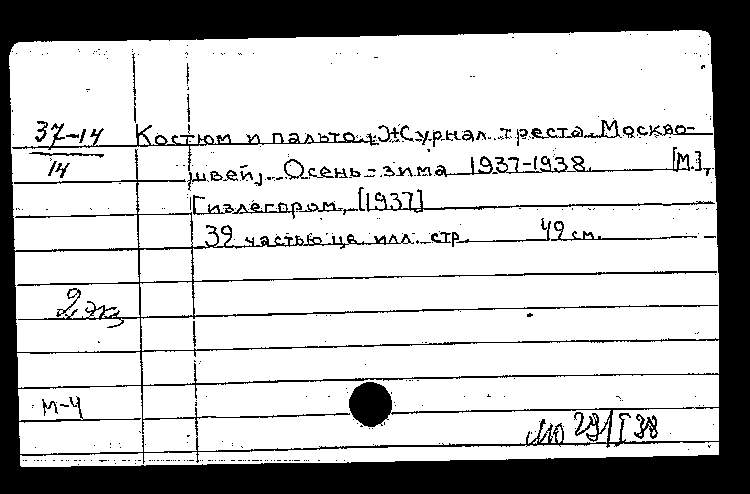 37-14 Костюм и пальто. Журнал треста Москво-
14 швей, Осень-зима 1937-1938. [М.],
Гизлегпром, [1937]
39 частью цв. илл. стр. 49 см.
2 экз
М-4
29/I 38